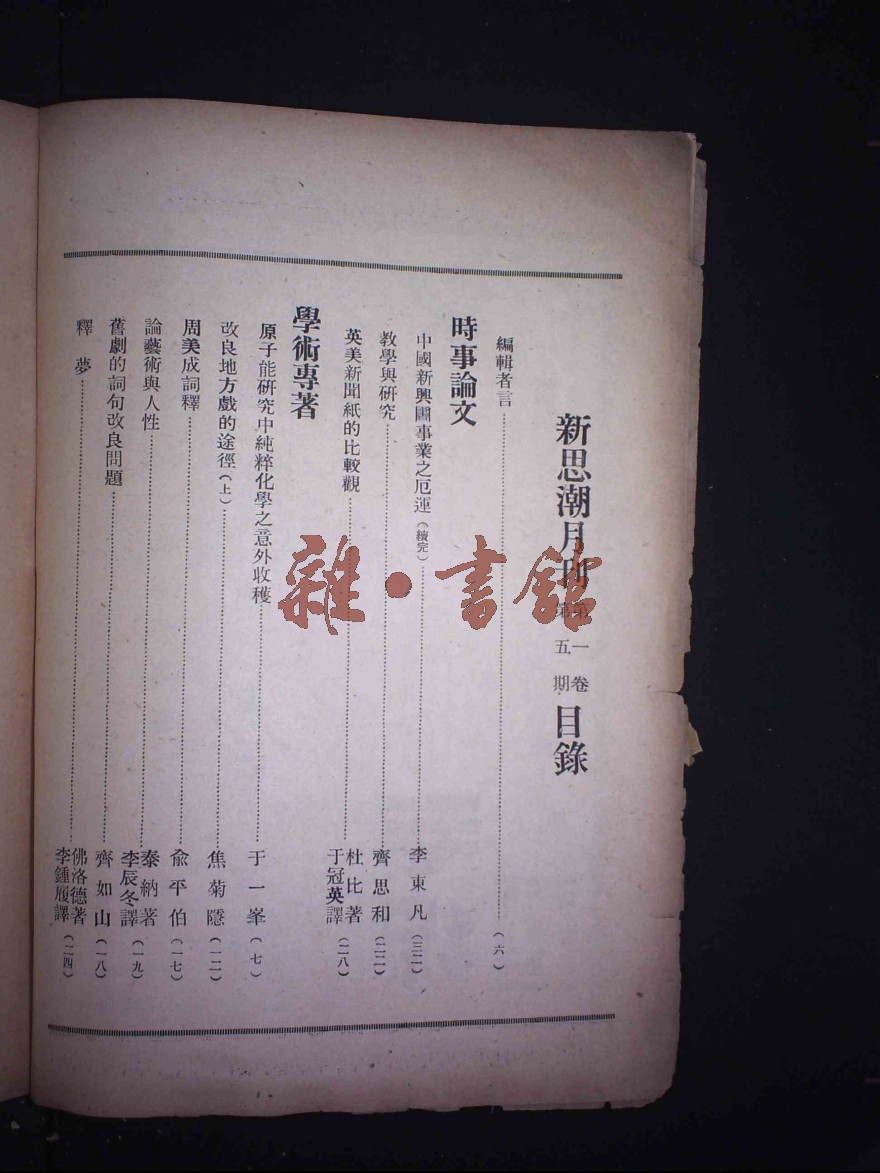 新思潮月刊 第一卷 第五期 目錄
編輯者言……(六)
時事論文
中國新興圖事業之厄運(續完)……李東凡(三二)
教學與研究……齊思和(二二)
英美新聞紙的比較觀……杜比著 于冠英譯(二八)
學術專著
原子能研究中純粹化學之意外收穫……于一峯(七)
改良地方戲的途徑(上)……焦菊隱(一二)
周美成詞釋……俞平伯(一七)
論藝術與人性……泰納著 李辰冬譯(一九)
舊劇的詞句改良問題……齊如山(一八)
釋夢……佛洛德著 李鍾履譯(二四)
雜·書館